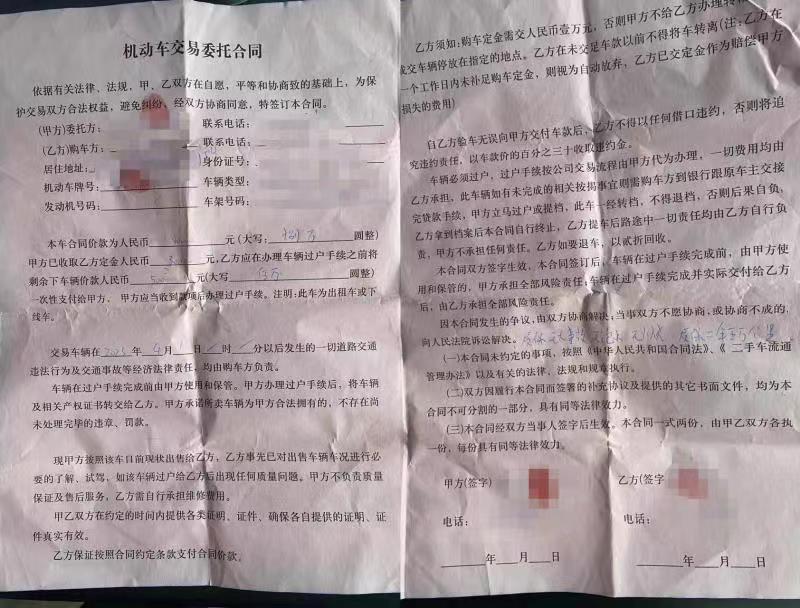 机动车交易委托合同
依据有关法律、法规，甲、乙双方在自愿，平等和协商致的基础上，为保
护交易双方合法权益，避免纠纷，经双方协商同意，特签订本合同。
(甲方)委托方： 联系电话：
(乙方)购车方： 联系电话：
居住地址： 身份证号：
机动车牌号： 车辆类型：
发动机号码： 车架号码：
本车合同价款为人民币 元(大写： 圆整)
甲方已收取乙方定金人民币 元,乙方应在办理车辆过户手续之前将
剩余下车辆价款人民币 元(大写 圆整)
一次性支付给甲方、甲方应当收到款项后办理过户手续。注明：此车为出租车或下
线车。
交易车辆在 年 月 日 时 分以后发生的一切道路交通
违法行为及交通事故等经济法律责任，均由购车方负责。
车辆在过户手续完成前由甲方使用和保管。甲方办理过户手续后，将车辆
及相关产权证书转交给乙方。甲方承诺所卖车辆为甲方合法拥有的，不存在尚
未处理完毕的违章、罚款。
现甲方按照该车目前现状出售给乙方，乙方事先已对出售车辆车况进行必
要的了解、试驾，如该车辆过户给乙方后出现任何质量问题。甲方不负责质量
保证及售后服务，乙方需自行承担维修费用。
甲乙双方在约定的时间内提供各类证明、证件、确保各自提供的证明、证
件真实有效。
乙方保证按照合同约定条款支付合同价款。
乙方须知：购车定金需交人民币壹万元，否则甲方不给乙方办理转
成交车辆停放在指定的地点。乙方在未交足车款以前不得将车转离(注：乙方在
一个工作日内未补足购车定金，则视为自动放弃，乙方已交定金作为赔偿甲方
损失的费用)
自乙方验车无误向甲方交付车款后，乙方不得以任何借口违约，否则将追
究违约责任，以车款价的百分之三十收取违约金。
车辆必须过户，过户手续按公司交易流程由甲方代为办理，一切费用均由
乙方承担，此车辆如有未完成的相关按揭事宜则需购车方到银行跟原车主交接
完贷款手续，甲方立马过户或提档，此车一经转档，不得退档，否则后果自负，
乙方拿到档案后本合同自行终止，乙方提车后路途中一切责任均由乙方自行负
责，甲方不承担任何责任。乙方如要退车，以贰折回收。
本合同双方签字生效，本合同签订后，车辆在过户手续完成前，由甲方使
用和保管的，甲方承担全部风险责任；车辆在过户手续完成并实际交付给乙方
后，由乙方承担全部风险责任。
因本合同发生的争议，由双方协商解决；当事双方不愿协商，或协商不成的，
向人民法院诉讼解决。
(一)本合同未约定的事项，按照《中华人民共和国合同法》、《 二手车流通
管理办法》以及有关的法律、法规和规章执行。
(二)双方因履行本合同而签署的补充协议及提供的其它书面文件，均为本
合同不可分割的一部分，具有同等法律效力。
(三)本合同经双方当事人签字后生效。本合同一式两份，由甲乙双方各执
一份，每份具有同等法律效力。
甲方(签字) 乙方(签字
电话： 电话：
年 月 日 年 月 日